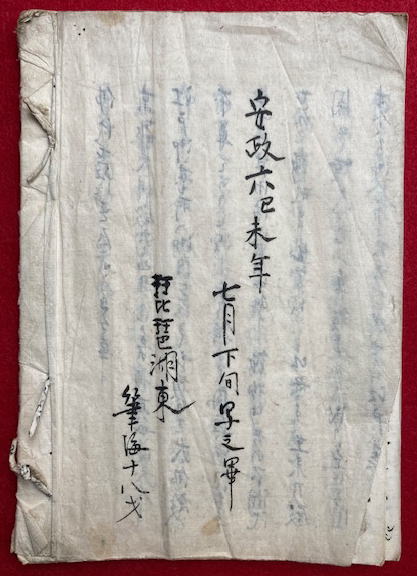 安政六己未年
七月下旬写之畢
琵琶湖東
筆海十八才